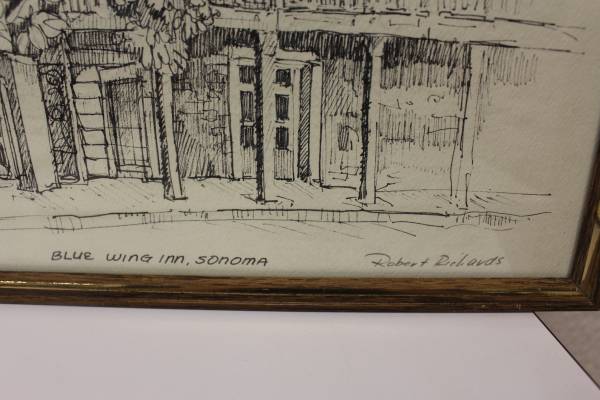 BLUE WING INN, SONOMA
Robert Richards